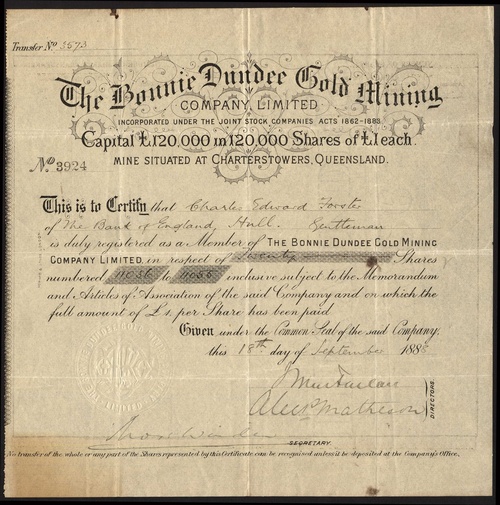 Transfer No 3573
The Bonnie Dundee Gold Mining
COMPANY, LIMITED
INCORPORATED UNDER THE JOINT STOCK COMPANIES ACTS 1862-1883
Capital £120,000 in 120,000 Shares of £1 each.
MINE SITUATED AT CHARTERSTOWERS, QUEENSLAND.
No 3924
This is to Certify that Charles Edward Forster
of The Bank of England, Hull. Gentleman
is duly registered as a Member of THE BONNIE DUNDEE GOLD MINING
COMPANY LIMITED, in respect of Twenty Shares
numbered to inclusive subject to the Memorandum
and Articles of Association of the said Company and on which the
full amount of £1 per Share has been paid
Given under the Common Seal of the said Company,
this 18th day of September 1888
J MacFarlane
Alex Matheson
DIRECTORS.
SECRETARY.
No transfer of the whole or any part of the Shares represented by this Certificate can be recognised unless it be deposited at the Company's Office.